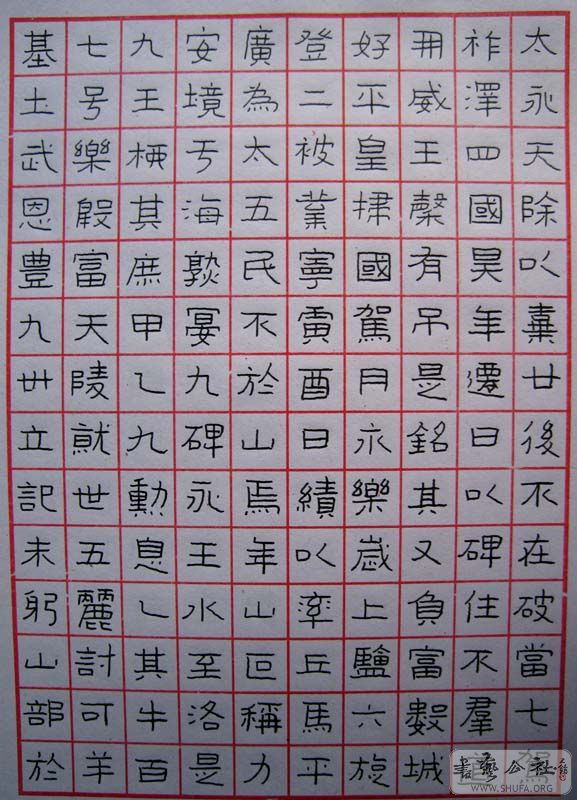 太永天除以廿後不在破當七駕
祚澤四國昊年遷日以碑住不羣
冊威王有弔是銘其又負富數城
好平皇掃國駕月永樂歲上鹽六旋
登二被業寧寅酉日績以率丘馬平
廣為太五民不於山焉年山叵稱力
安境亐海敦宴九碑永王水至洛是
九王其庶甲乙九勳息其牛百
七号樂殷富天陵就世五麗討可羊
基土武恩豊九世立記未躬山部於
書藝公社
WWW.SHUFA.ORG